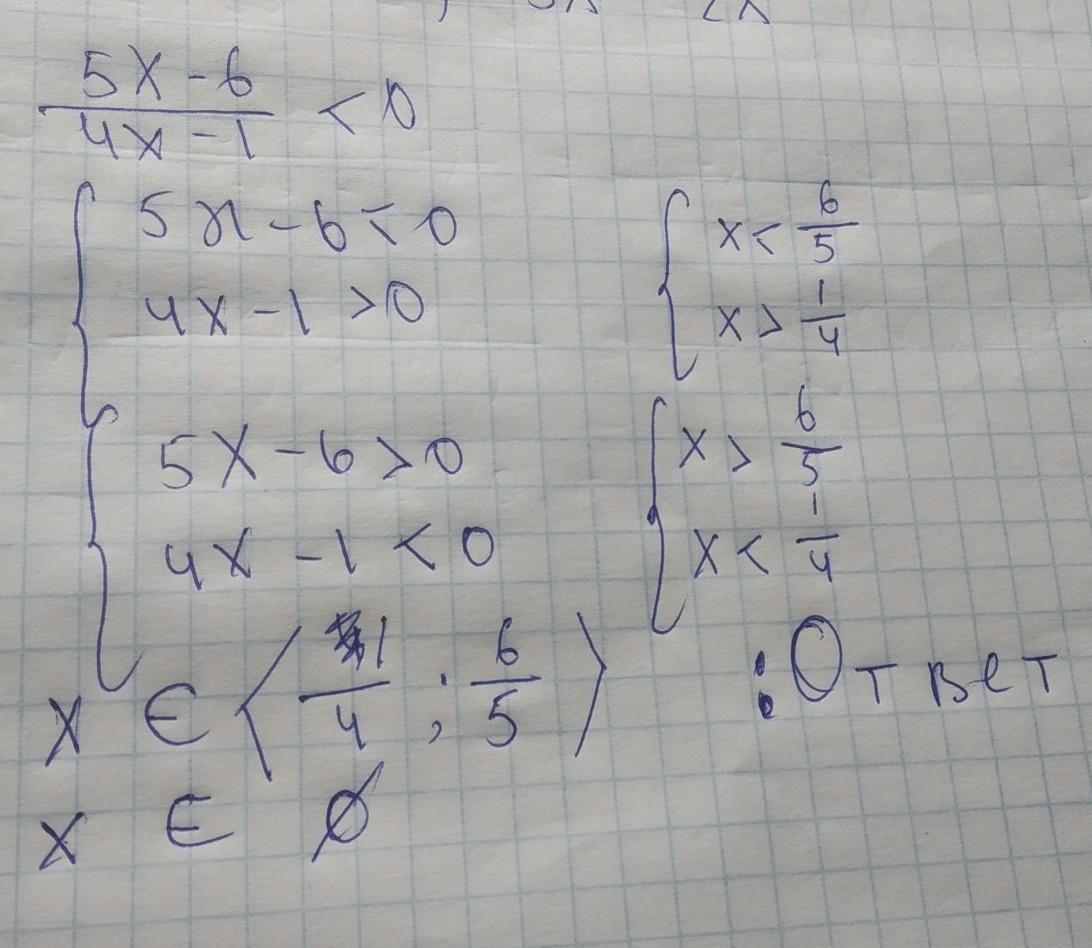 5x-6
4x-1 < 0
5x-6<0
4x-1>0
x< 6/5
x> 1/4
5x-6>0
4x-1<0
x> 6/5
x< 1/4
x ∈ ⟨ 1/4 ; 6/5 ⟩ :Ответ
x ∈ ∅